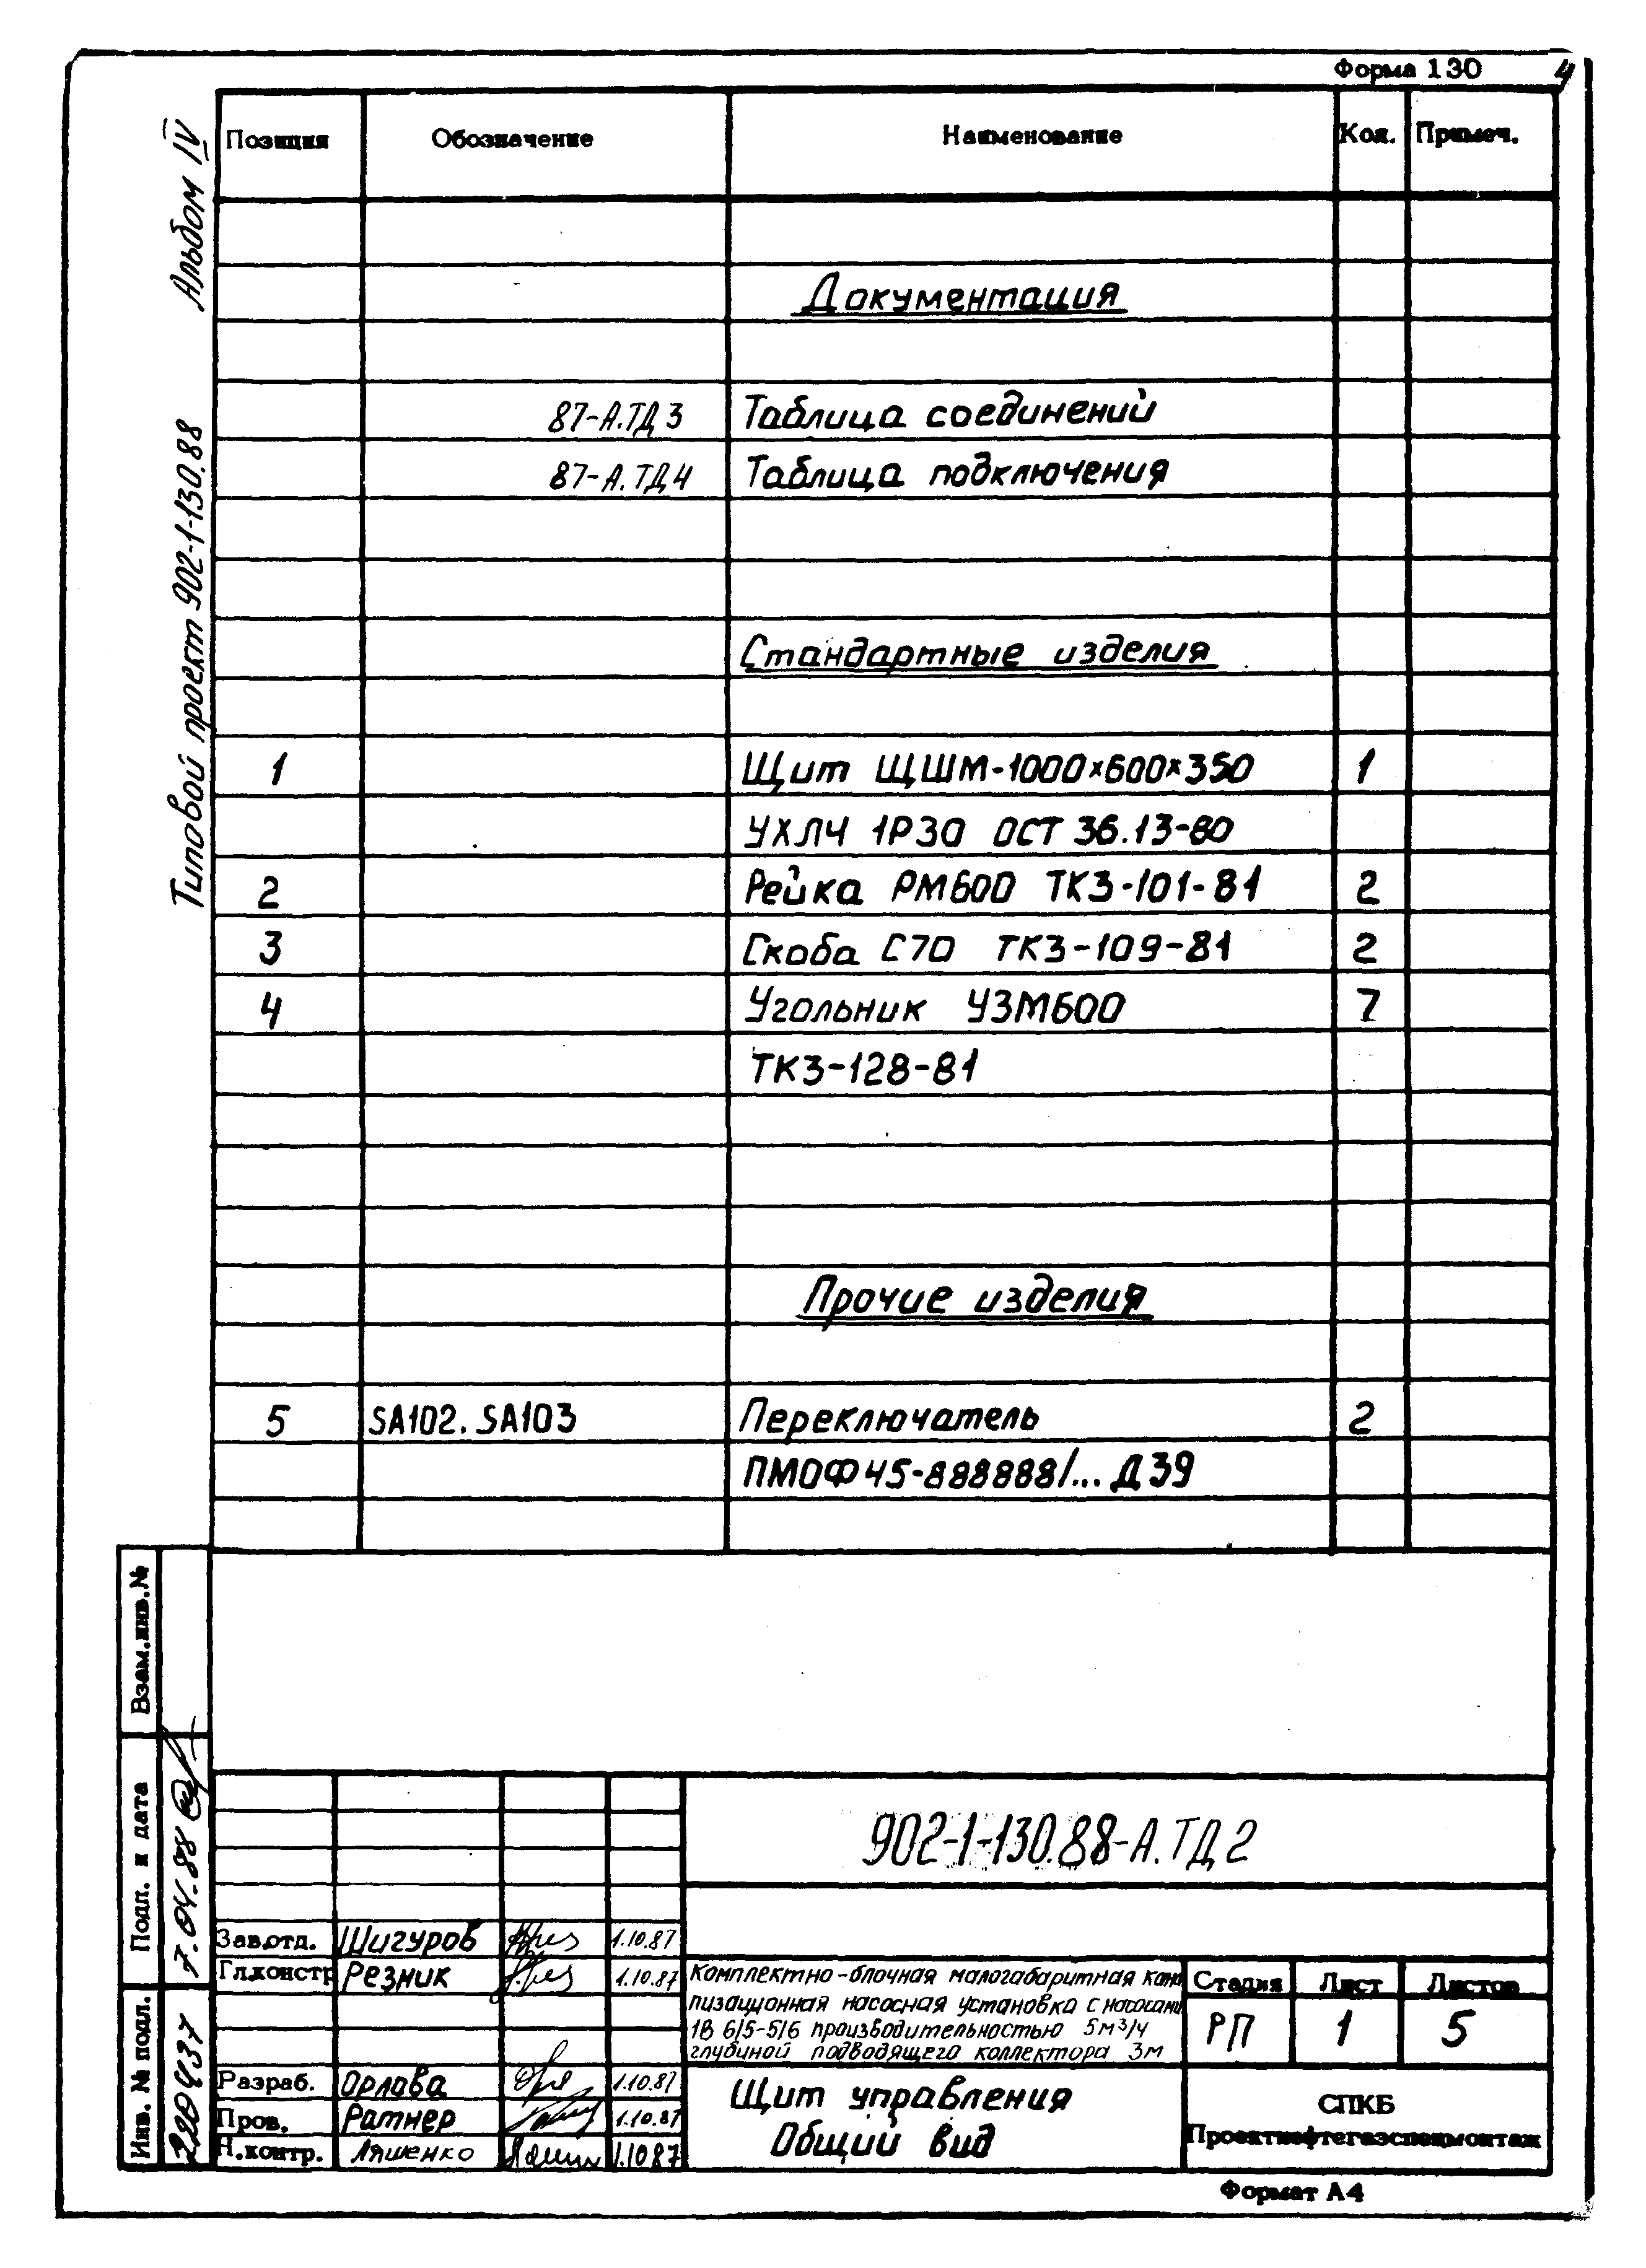 Форма 130
4
Альбом IV
Типовой проект 902-1-130.88
Позиция Обозначение Наименование Кол. Примеч.
Документация
87-А.ТД3 Таблица соединений
87-А.ТД4 Таблица подключения
Стандартные изделия
1 Щит ЩШМ-1000×600×350 1
УХЛ4 1Р30 ОСТ 36.13-80
2 Рейка РМ600 ТК3-101-81 2
3 Скоба С70 ТК3-109-81 2
4 Угольник УЗМ600 7
ТК3-128-81
Прочие изделия
5 SA102. SA103 Переключатель 2
ПМОФ45-888888/... Д39
Взам.инв.№
Подп. и дата 7.04.88
Инв. № подл.
902-1-130.88-А.ТД2
Зав.отд. Шигуров 1.10.87
Гл.констр Резник 1.10.87
Разраб. Орлова 1.10.87
Пров. Ратнер 1.10.87
Н.контр. Ляшенко 1.10.87
Комплектно-блочная малогабаритная кана
лизационная насосная установка с насосами
1В 6/5-5/6 производительностью 5м³/ч
глубиной подводящего коллектора 3м
Стадия Лист Листов
РП 1 5
Щит управления
Общий вид
СПКБ
Проектнефтегазспецмонтаж
Формат А4